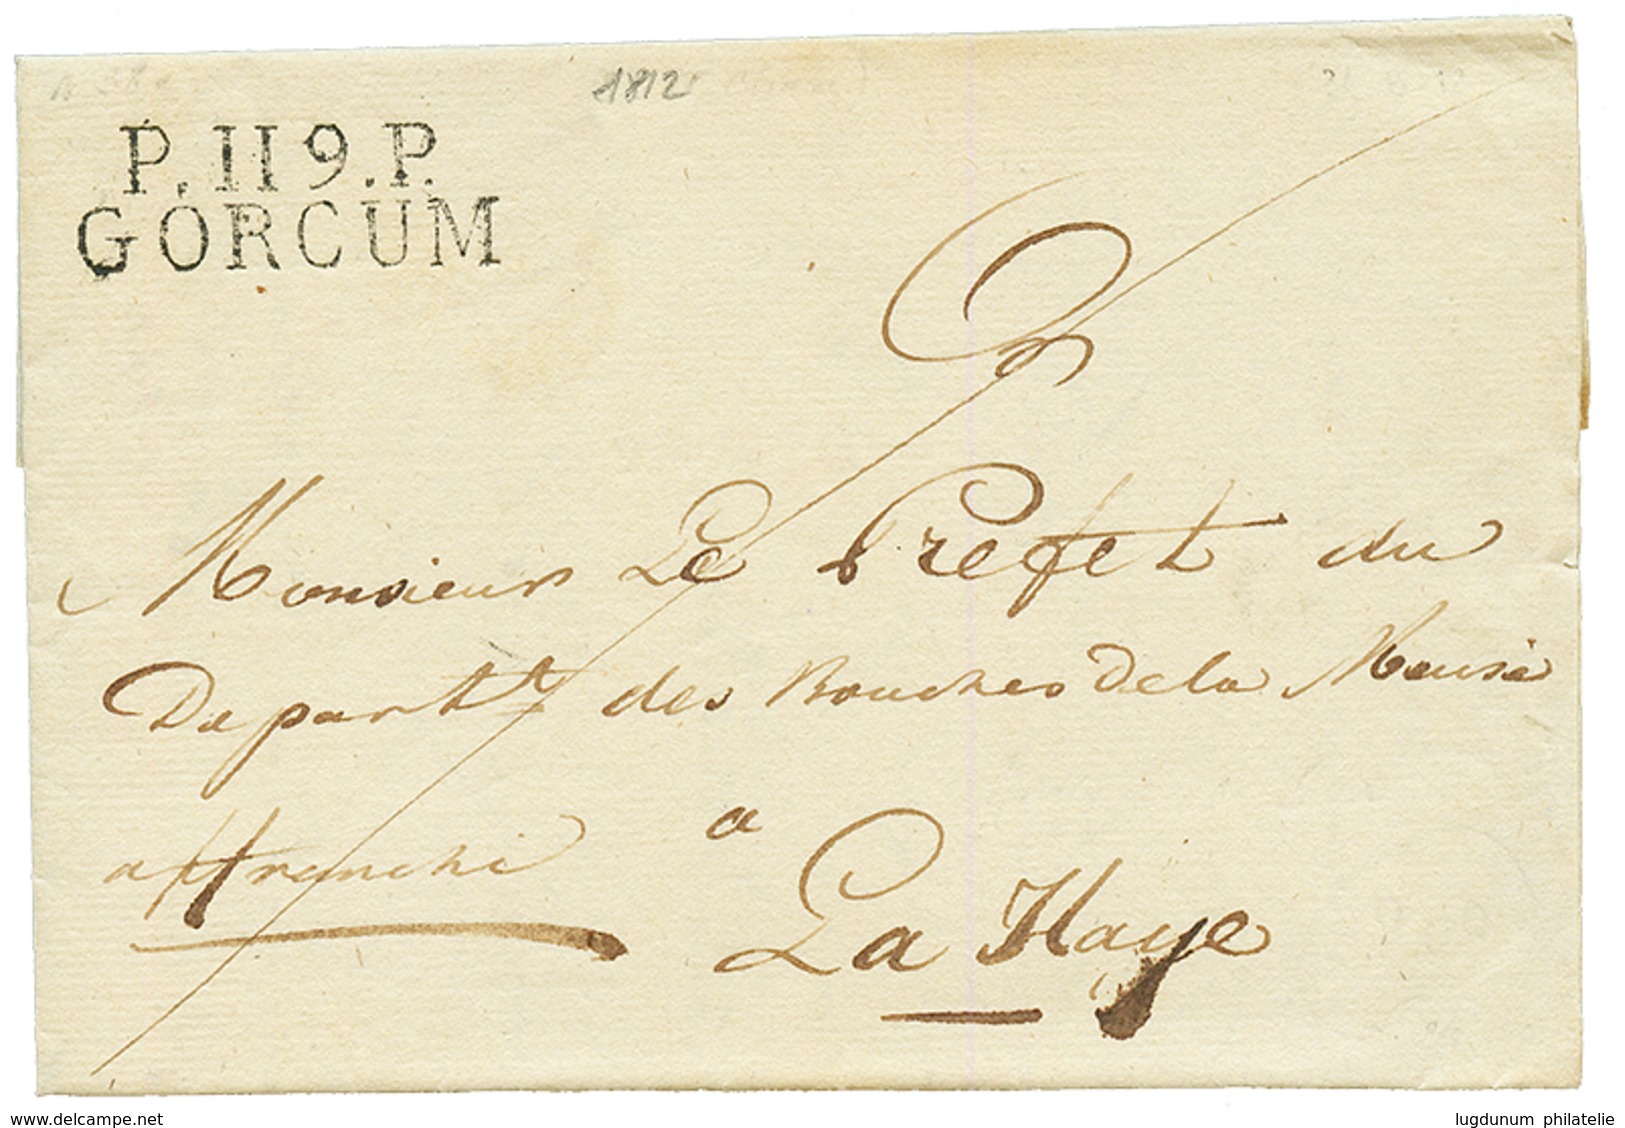 1812
P.119.P.
GORCUM
Monsieur Le Prefet du
Departt des Bouches de la Meuse
affranchi a
La Haye
www.delcampe.net
lugdunum philatelie